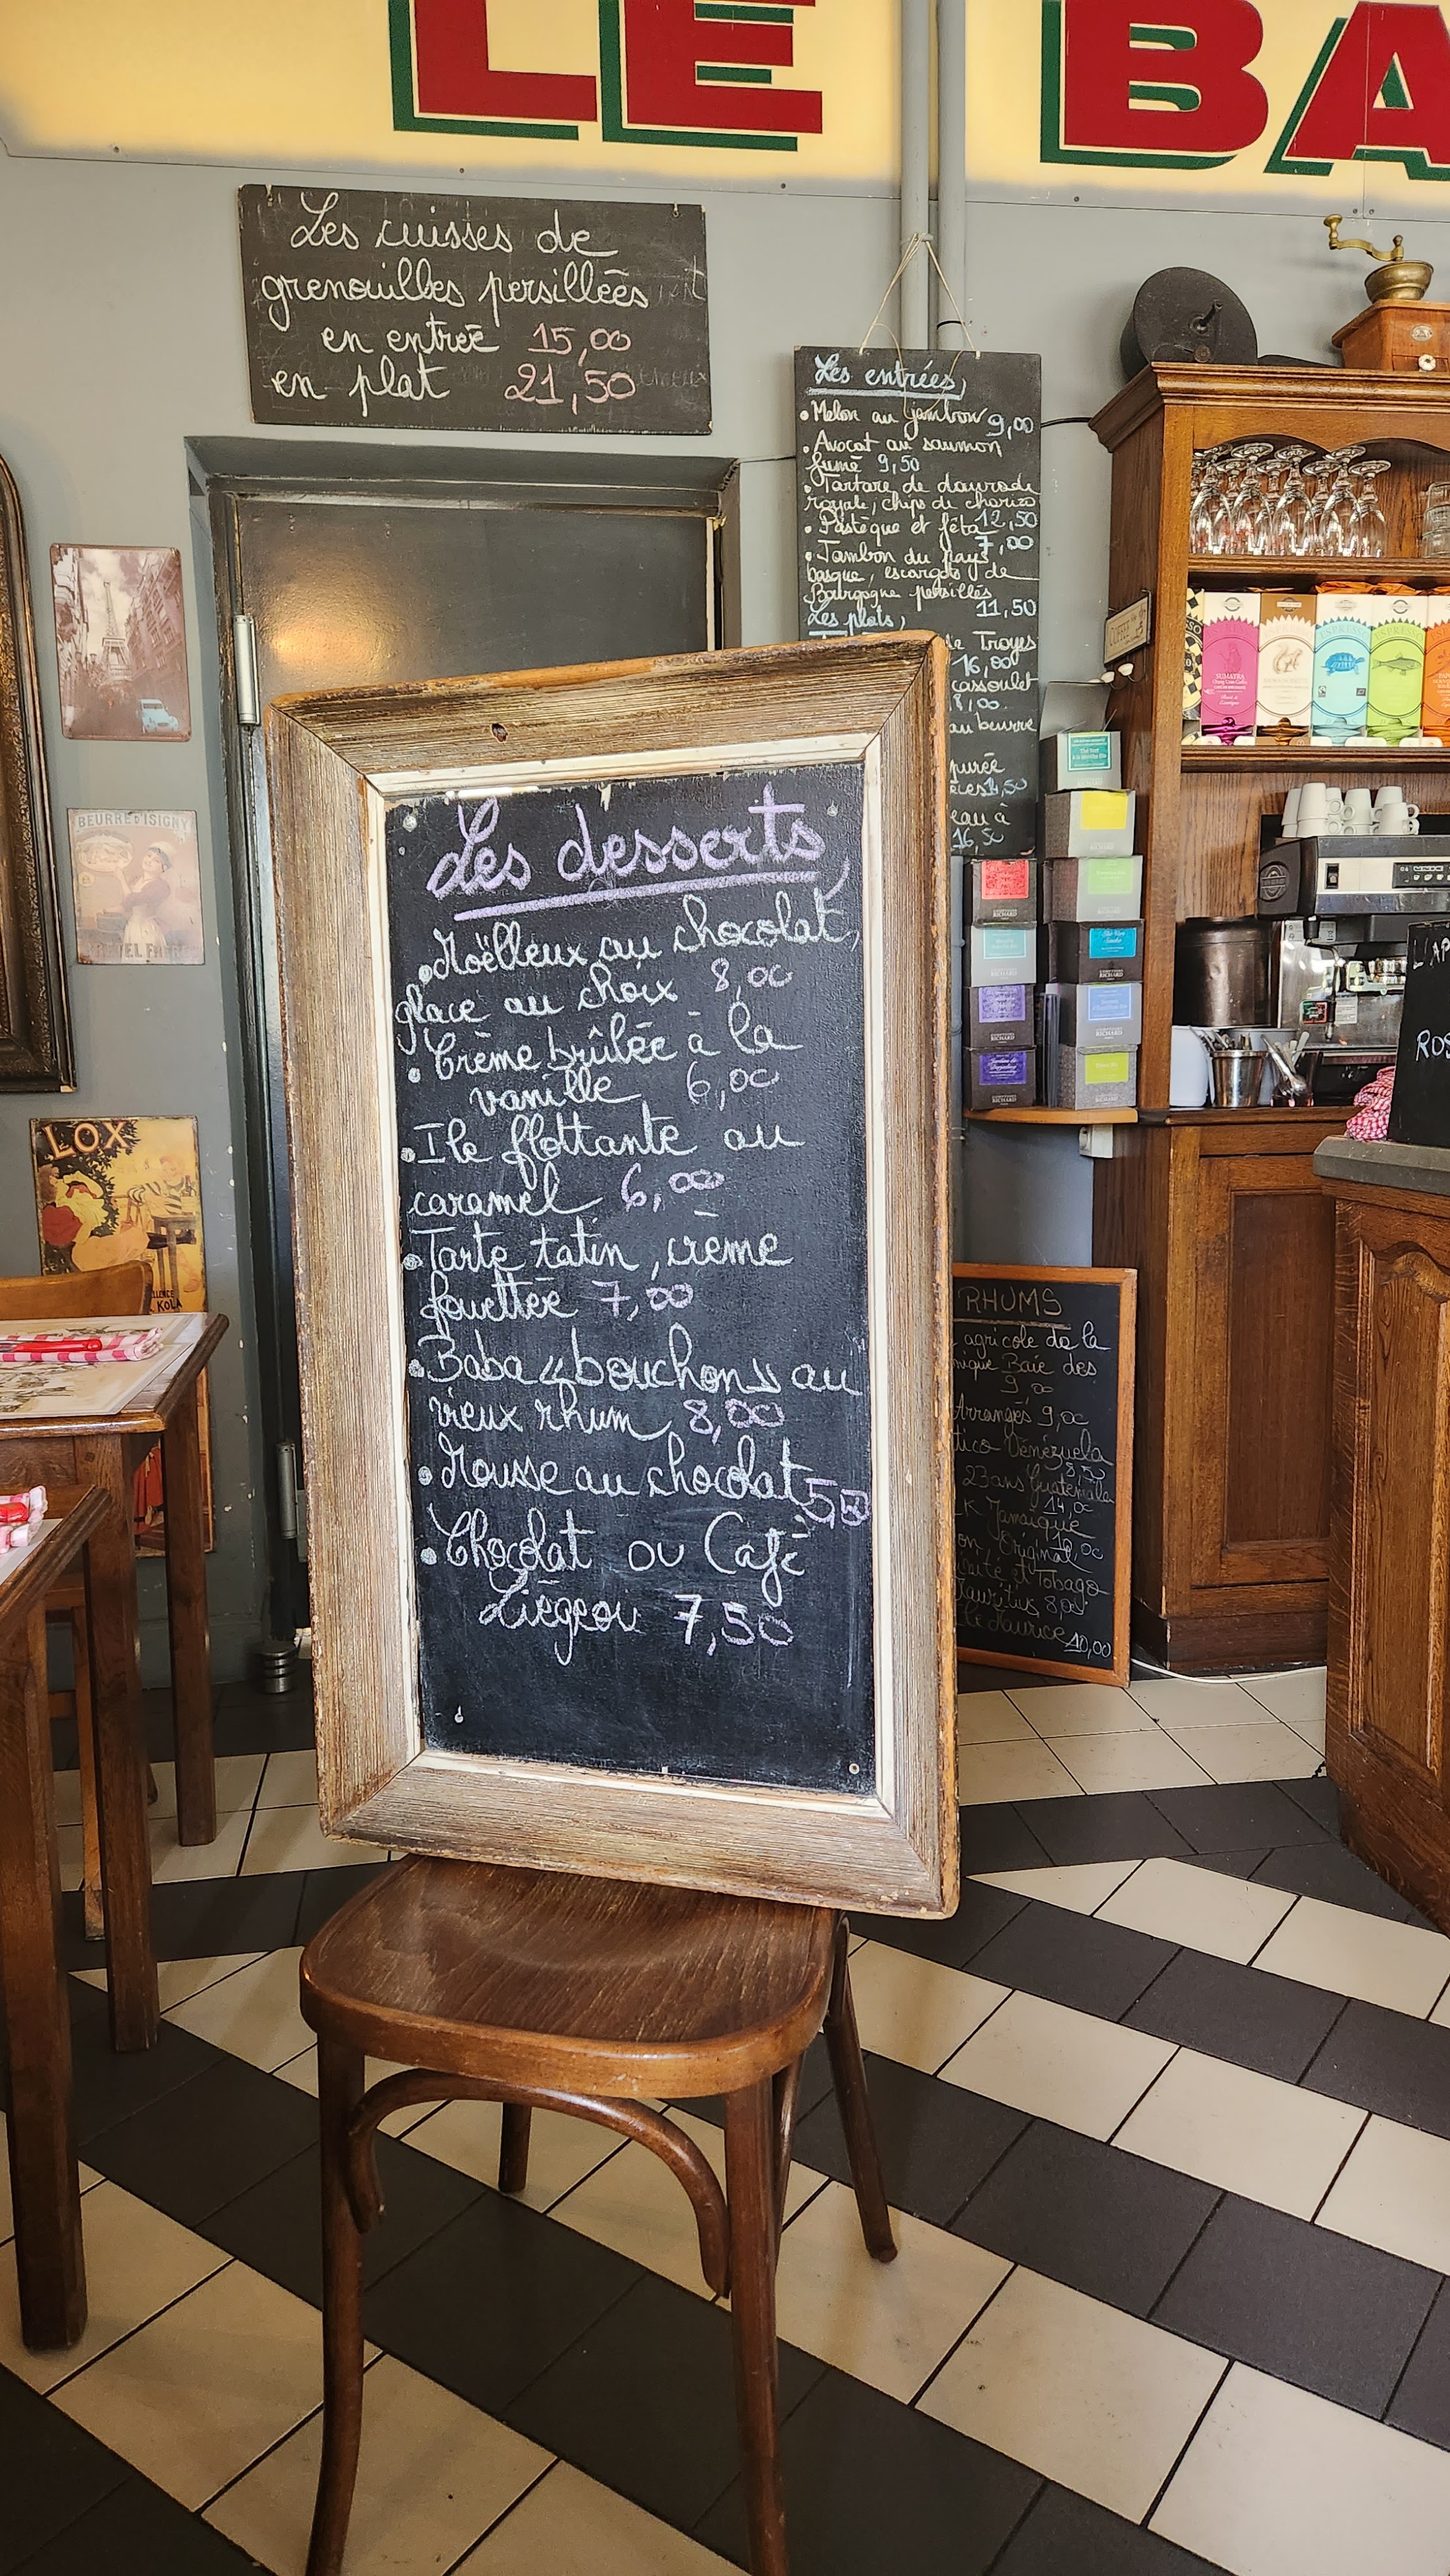 LE BA
Les cuisses de
grenouilles persillées
en entrée 15,00
en plat 21,50
Les entrées,
• Melon au jambon 9,00
• Avocat au saumon
fumé 9,50
• Tartare de daurade
royale, chips de chorizo
12,50
• Pastèque et féta
7,00
• Jambon du Pays
basque, escargots de
Bourgogne persillés
11,50
Les plats,
Troyes
16,00
cassoulet
8,00
au beurre
purée
eau à
16,50
BEURRE D'ISIGNY
LOX
KOLA
COFFEE
SUMATRA
RICHARD
RICHARD
RICHARD
RICHARD
Les desserts,
• Moëlleux au chocolat,
glace au choix 8,00
• Crème brûlée à la
vanille 6,00
• Ile flottante au
caramel 6,00
• Tarte tatin, crème
fouettée 7,00
• Baba «bouchon» au
vieux rhum 8,00
• Mousse au chocolat 5,50
• Chocolat ou Café
Liégeou 7,50
L'AP
ROS
RHUMS
agricole de la
nique Baie des
9,00
Arrangés 9,00
tico Vénézuela
8,50
23ans Guatemala
14,00
K Jamaïque
10,00
on Original
nité et Tobago
Mauritius 8,00
Le Maurice 10,00